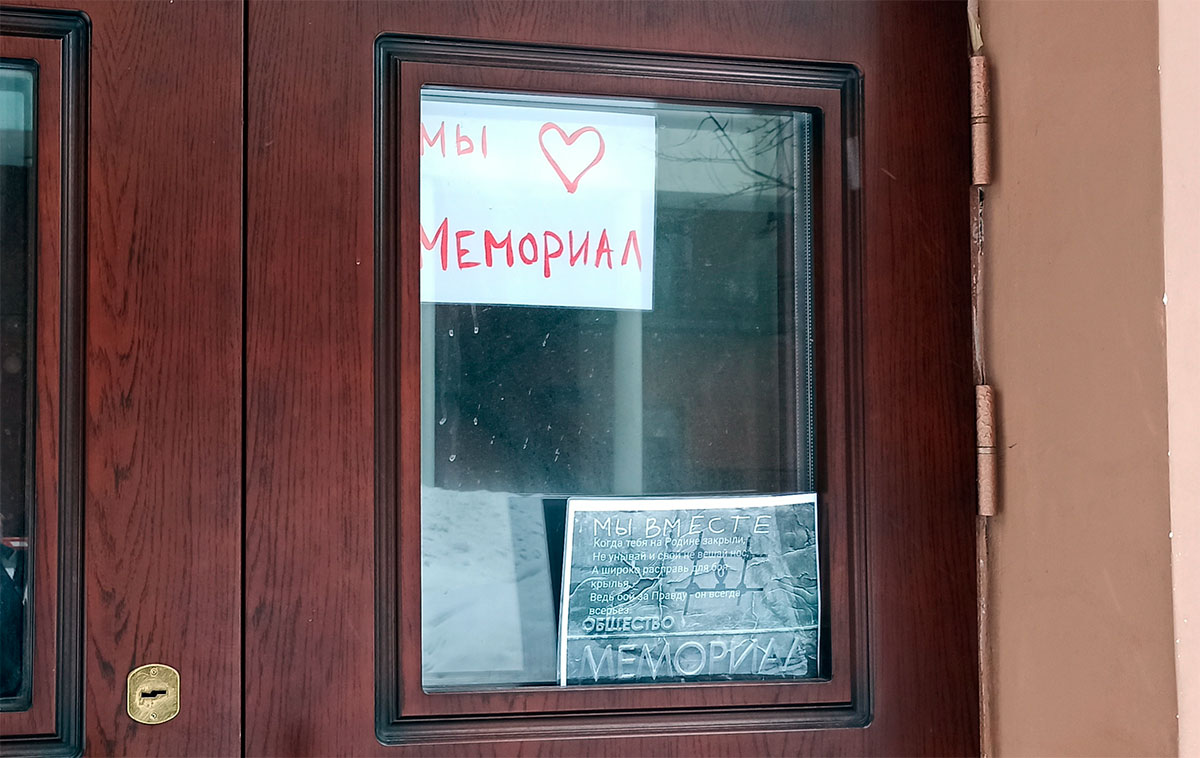 МЫ
МЕМОРИАЛ
МЫ ВМЕСТЕ
Когда тебя на Родине закрыли,
Не унывай и свой не вешай нос,
А широко расправь для боя
крылья
Ведь бой за Правду - он всегда
всерьёз.
ОБЩЕСТВО
МЕМОРИАЛ